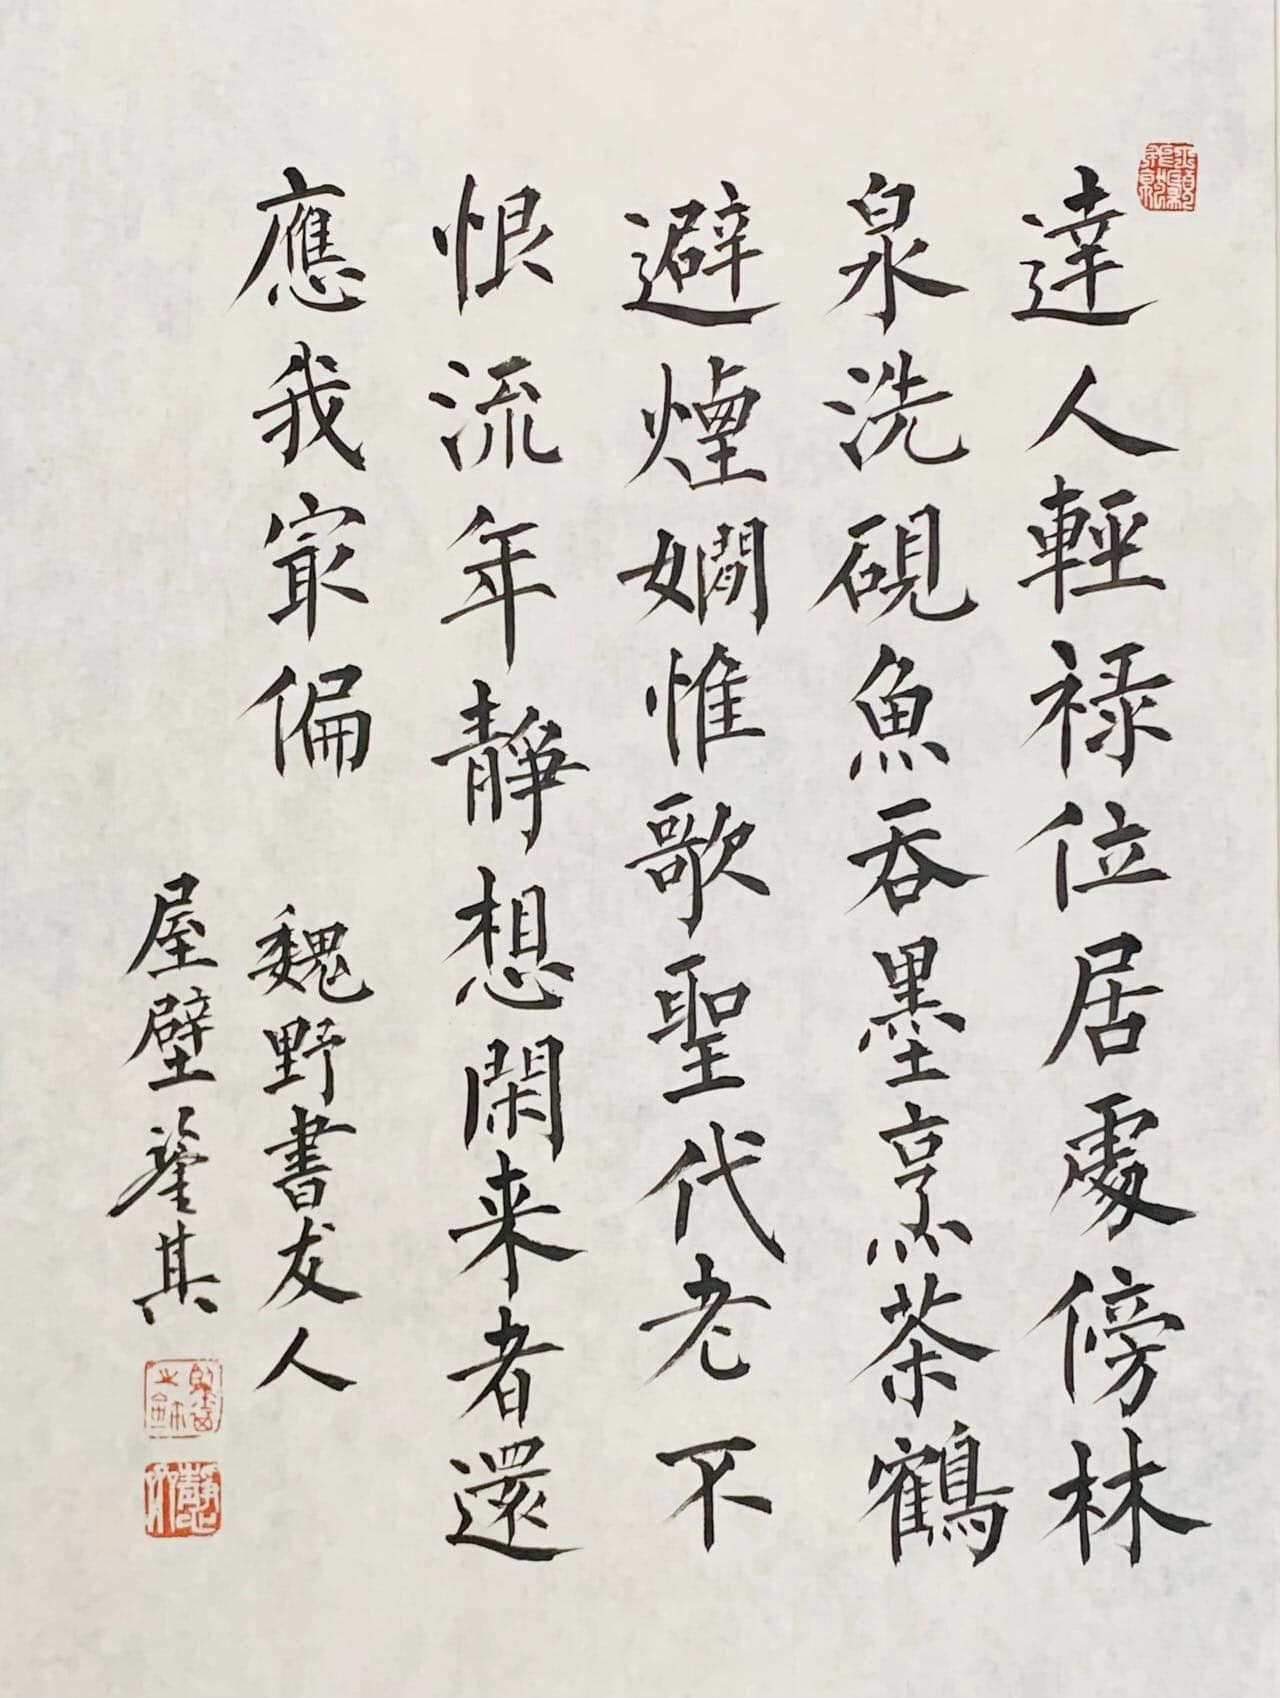 達人輕禄位居處傍林
泉洗硯魚吞墨烹茶鶴
避煙嫺惟歌聖代老不
恨流年靜想閑来者還
應我冣偏 魏野書友人
屋壁 其